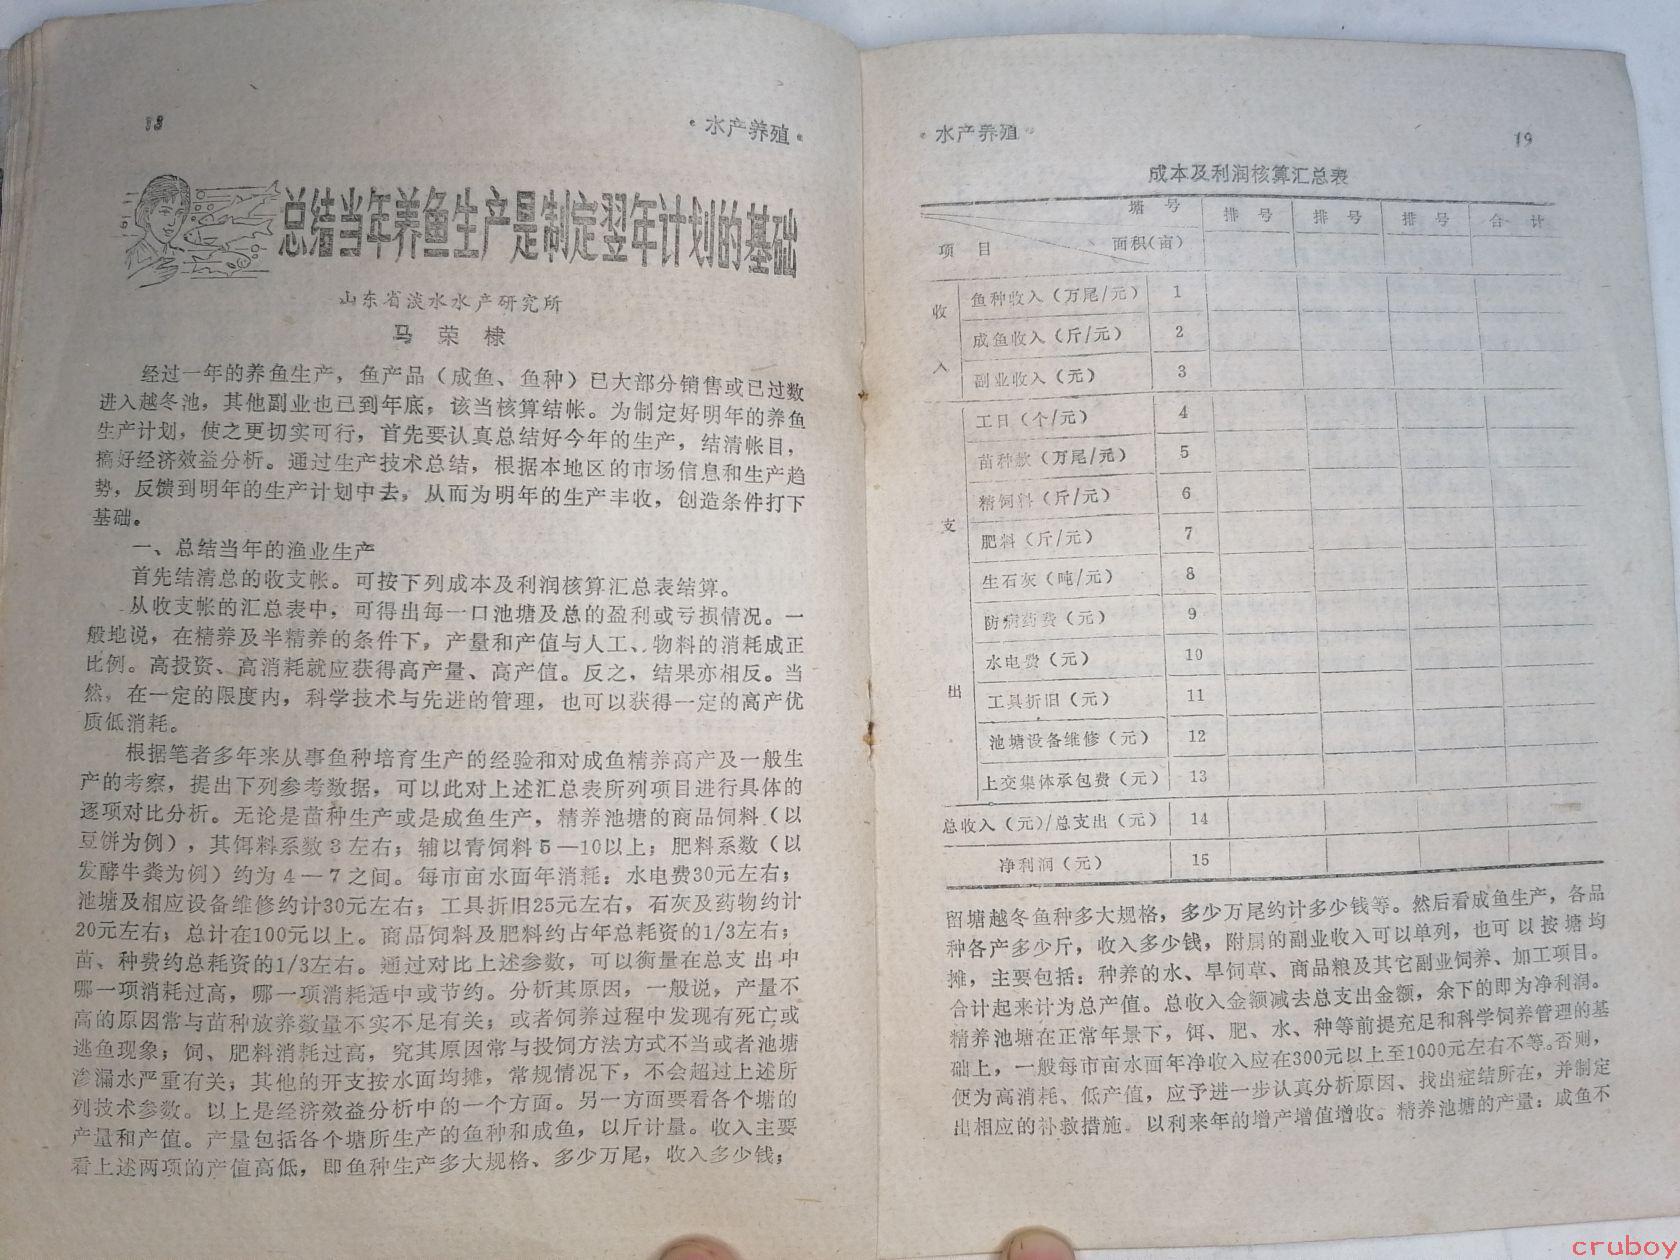 18
·水产养殖·
总结当年养鱼生产是制定翌年计划的基础
山东省淡水水产研究所
马荣棣
经过一年的养鱼生产，鱼产品（成鱼、鱼种）已大部分销售或已过数
进入越冬池，其他副业也已到年底，该当核算结帐。为制定好明年的养鱼
生产计划，使之更切实可行，首先要认真总结好今年的生产，结清帐目，
搞好经济效益分析。通过生产技术总结，根据本地区的市场信息和生产趋
势，反馈到明年的生产计划中去，从而为明年的生产丰收，创造条件打下
基础。
一、总结当年的渔业生产
首先结清总的收支帐。可按下列成本及利润核算汇总表结算。
从收支帐的汇总表中，可得出每一口池塘及总的盈利或亏损情况。一
般地说，在精养及半精养的条件下，产量和产值与人工、物料的消耗成正
比例。高投资、高消耗就应获得高产量、高产值。反之，结果亦相反。当
然，在一定的限度内，科学技术与先进的管理，也可以获得一定的高产优
质低消耗。
根据笔者多年来从事鱼种培育生产的经验和对成鱼精养高产及一般生
产的考察，提出下列参考数据，可以此对上述汇总表所列项目进行具体的
逐项对比分析。无论是苗种生产或是成鱼生产，精养池塘的商品饲料（以
豆饼为例），其饵料系数3左右；辅以青饲料5—10以上；肥料系数（以
发酵牛粪为例）约为4—7之间。每市亩水面年消耗：水电费30元左右；
池塘及相应设备维修约计30元左右；工具折旧25元左右，石灰及药物约计
20元左右；总计在100元以上。商品饲料及肥料约占年总耗资的1/3左右；
苗、种费约总耗资的1/3左右。通过对比上述参数，可以衡量在总支出中
哪一项消耗过高，哪一项消耗适中或节约。分析其原因，一般说，产量不
高的原因常与苗种放养数量不实不足有关；或者饲养过程中发现有死亡或
逃鱼现象；饲、肥料消耗过高，究其原因常与投饲方法方式不当或者池塘
渗漏水严重有关；其他的开支按水面均摊，常规情况下，不会超过上述所
列技术参数。以上是经济效益分析中的一个方面。另一方面要看各个塘的
产量和产值。产量包括各个塘所生产的鱼种和成鱼，以斤计量。收入主要
看上述两项的产值高低，即鱼种生产多大规格、多少万尾，收入多少钱；
·水产养殖·
19
成本及利润核算汇总表
塘号 排号 排号 排号 合计
项目 面积(亩)
收入
鱼种收入（万尾/元） 1
成鱼收入（斤/元） 2
副业收入（元） 3
支出
工日（个/元） 4
苗种款（万尾/元） 5
精饲料（斤/元） 6
肥料（斤/元） 7
生石灰（吨/元） 8
防病药费（元） 9
水电费（元） 10
工具折旧（元） 11
池塘设备维修（元） 12
上交集体承包费（元） 13
总收入（元）/总支出（元） 14
净利润（元） 15
留塘越冬鱼种多大规格，多少万尾约计多少钱等。然后看成鱼生产，各品
种各产多少斤，收入多少钱，附属的副业收入可以单列，也可以按塘均
摊，主要包括：种养的水、旱饲草、商品粮及其它副业饲养、加工项目。
合计起来计为总产值。总收入金额减去总支出金额，余下的即为净利润。
精养池塘在正常年景下，饵、肥、水、种等前提充足和科学饲养管理的基
础上，一般每市亩水面年净收入应在300元以上至1000元左右不等。否则，
便为高消耗、低产值，应予进一步认真分析原因、找出症结所在，并制定
出相应的补救措施。以利来年的增产增值增收。精养池塘的产量：成鱼不
cruboy